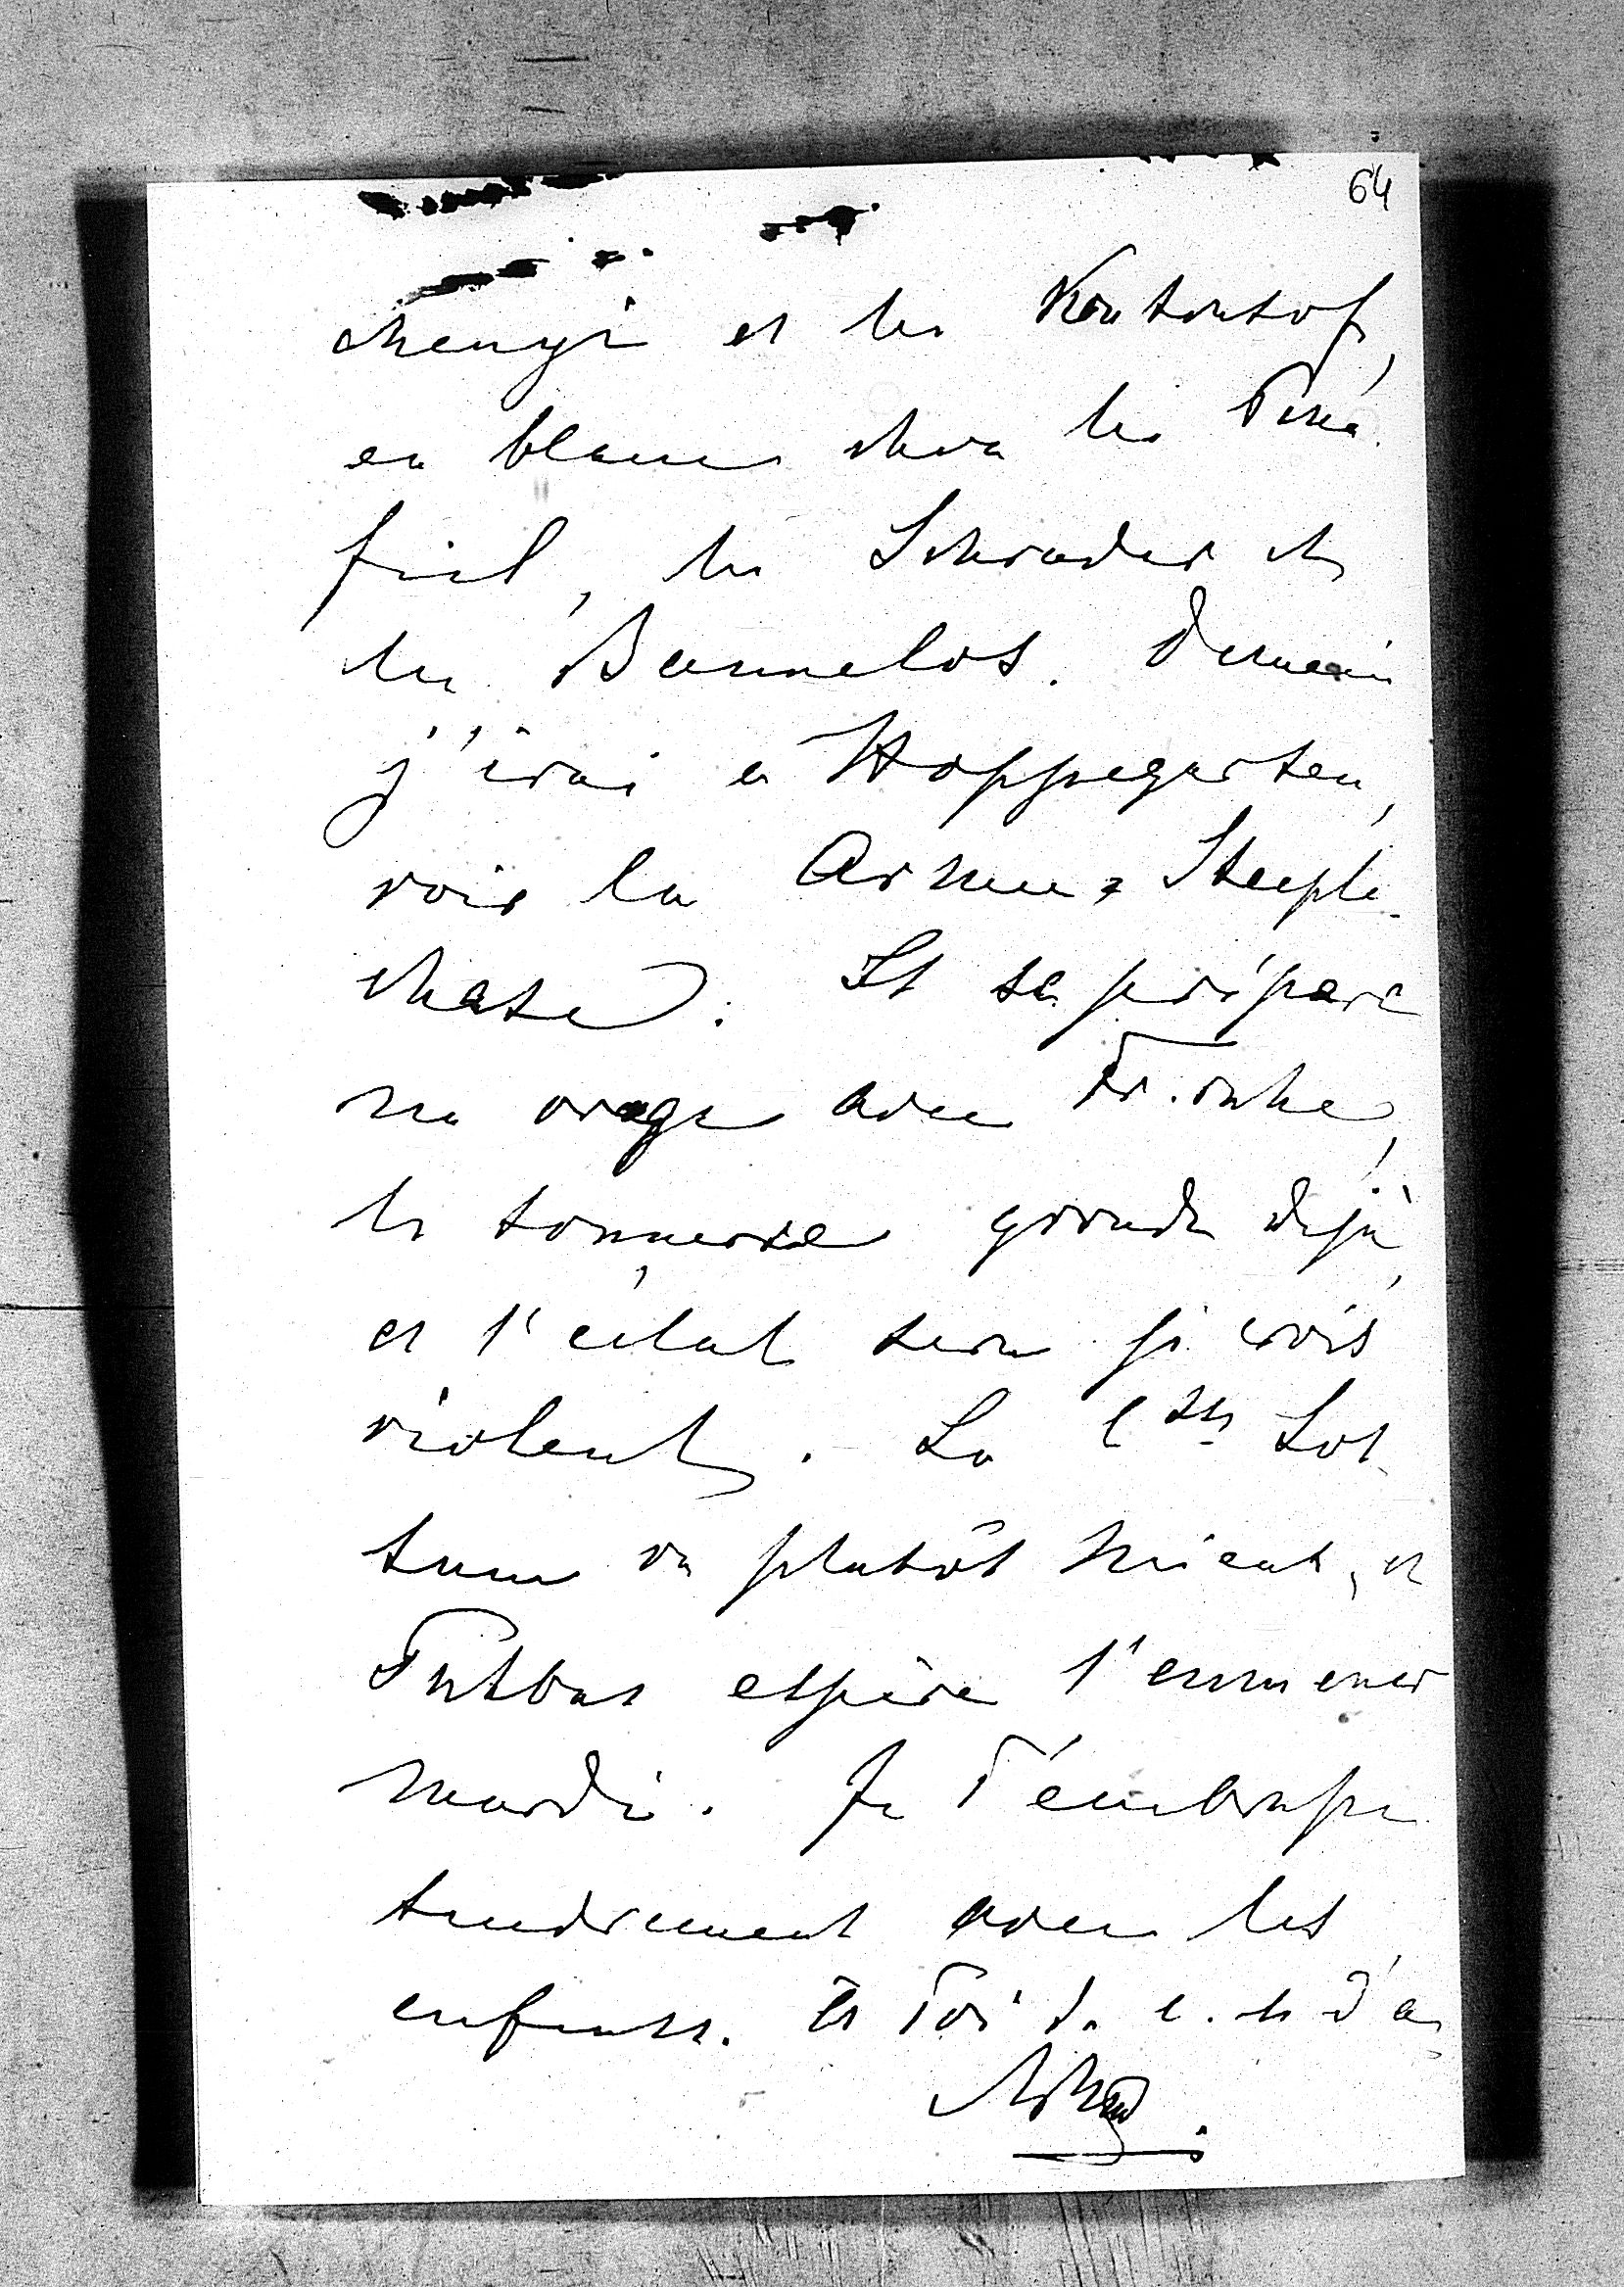 64
et les Koutousof,
en blanc chez les
field, les Schrader et
les Bannelos. Demain
j'irai à Hoppegarten,
voir la Armee-Steeple-
chase. Il se prépare
un orage avec
le tonnerre gronde déjà,
et l'éclat sera je crois
violent. La Ctss Lot-
tum va plutôt mieux, et
Putbus espère l'emmener
mardi. Je T'embrasse
tendrement avec les
enfants. Et Toi d. c. et d'a.